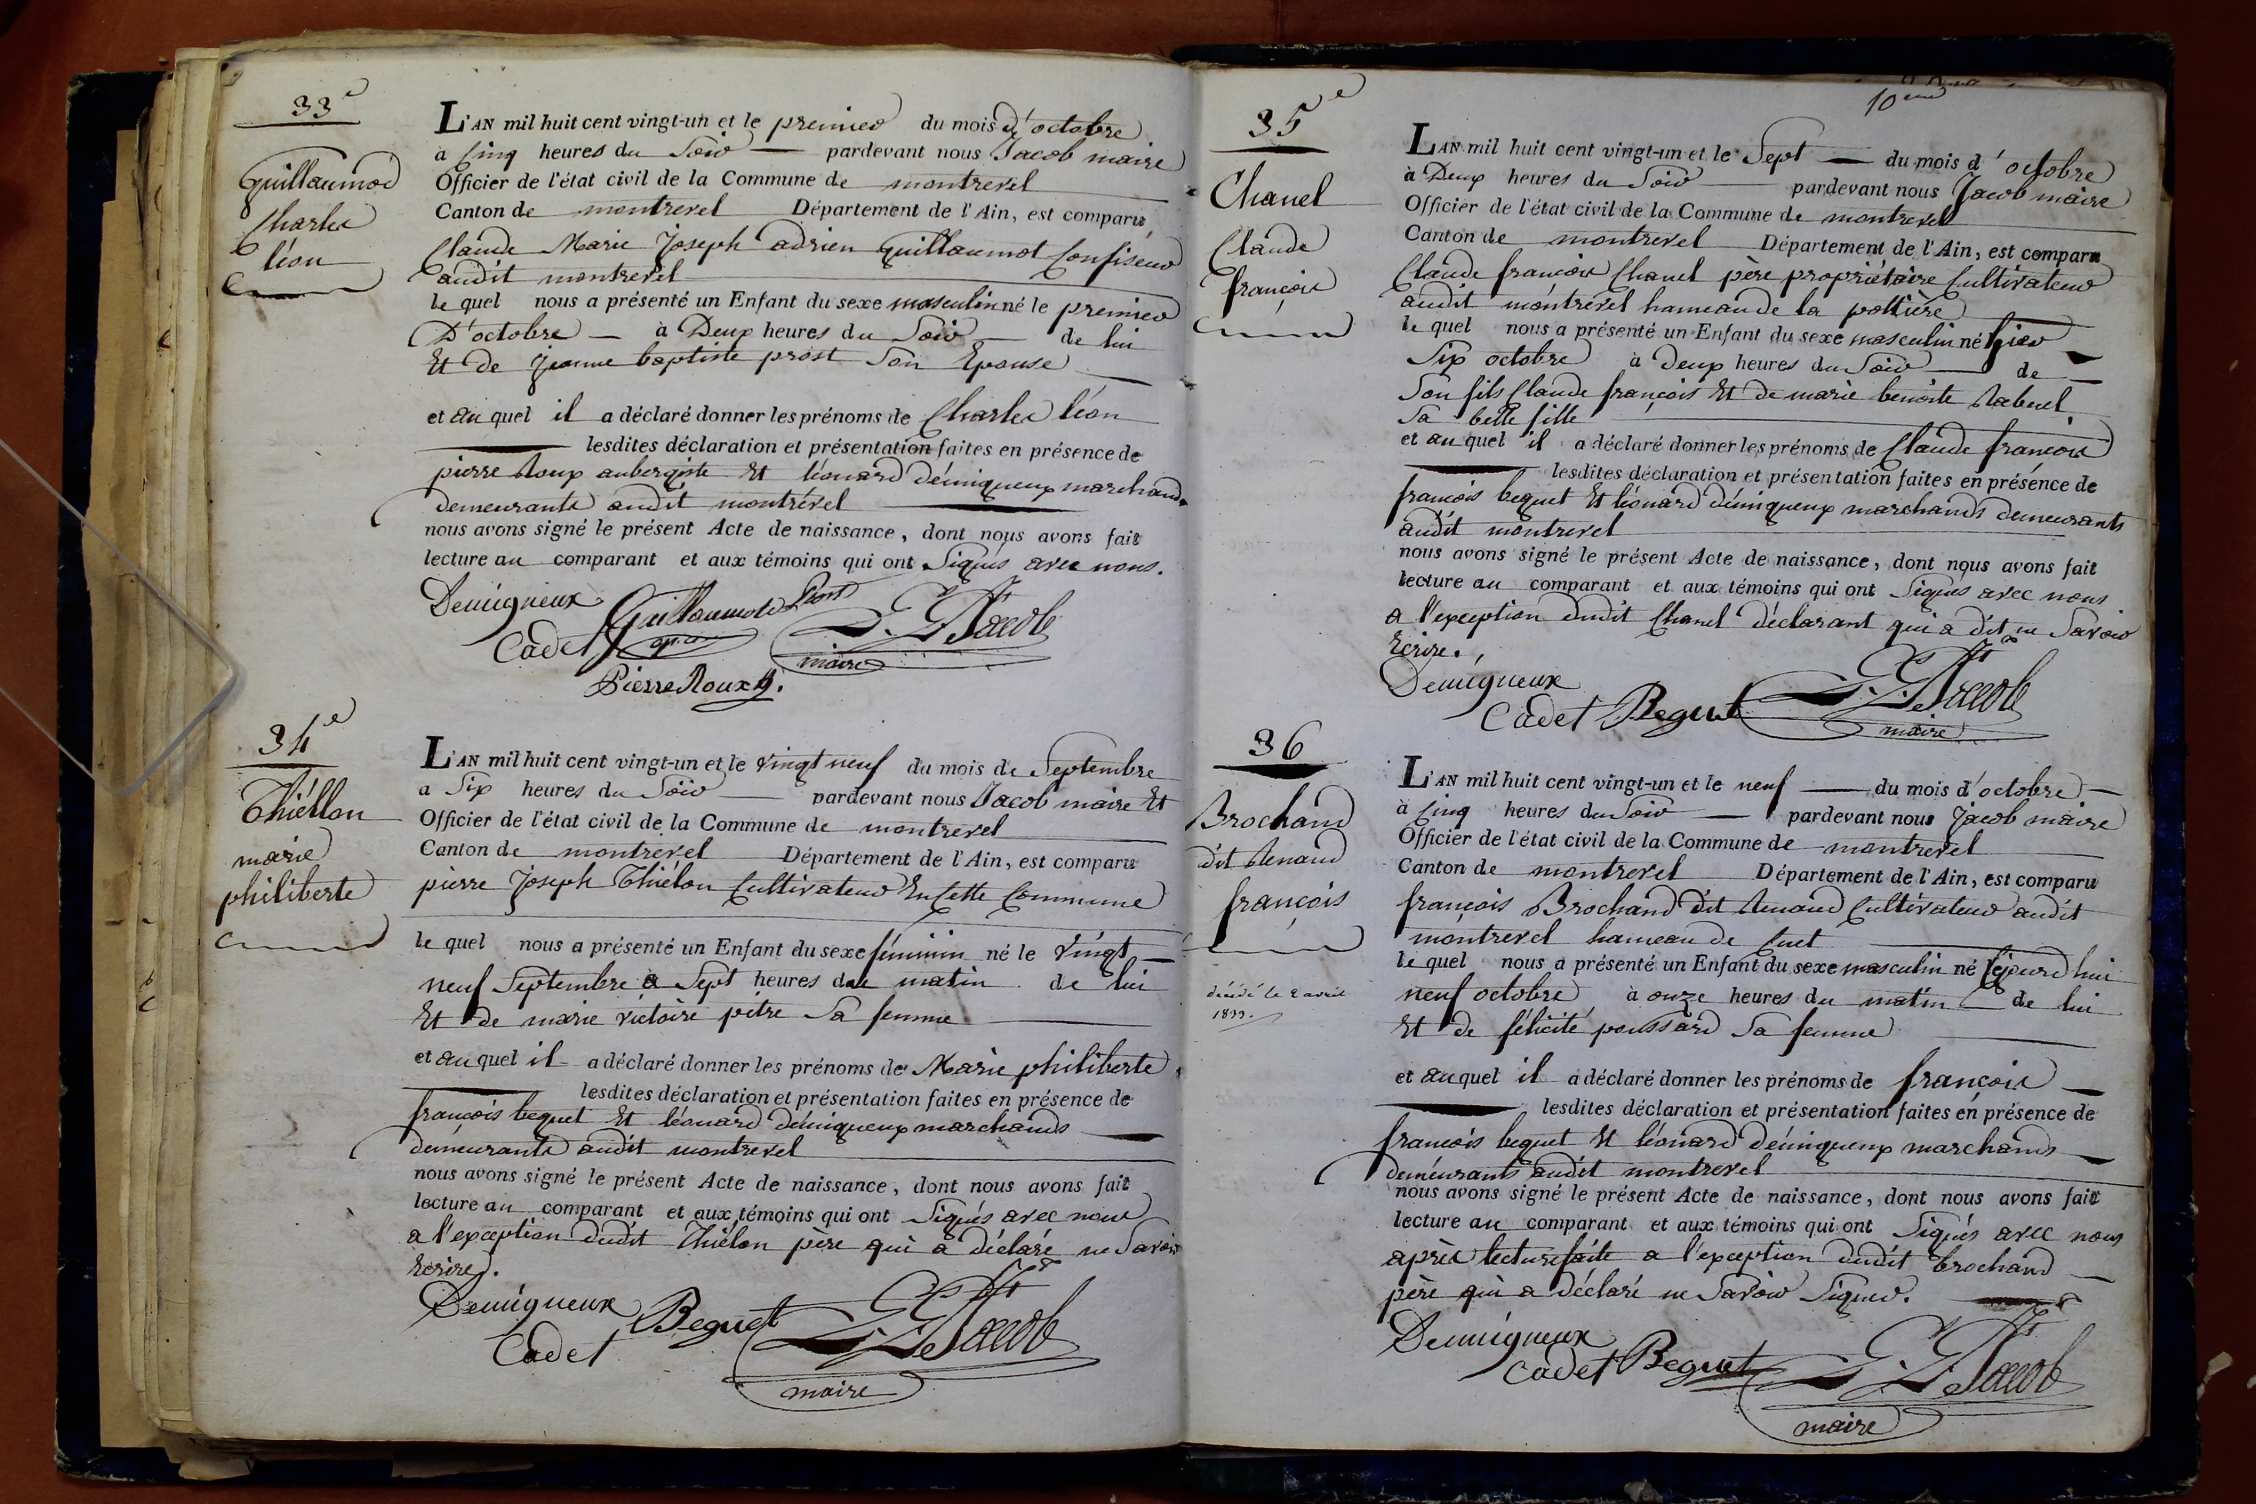 33e
Guillaumod
Charles
léon
L'AN mil huit cent vingt-un et le premier du mois d'octobre
à Cinq heures du Soir pardevant nous Jacob maire
Officier de l'état civil de la Commune de montrevel
Canton de montrevel Département de l'Ain, est comparu
Claude Marie Joseph adrien Guillaumot Confiseur
audit montrevel
le quel nous a présenté un Enfant du sexe masculin né le premier
D'octobre à Deux heures du Soir de lui
Et de jeanne baptiste prost Son Epouse
et au quel il a déclaré donner les prénoms de Charles léon
lesdites déclaration et présentation faites en présence de
pierre Roux aubergiste Et léonard Démiqueux marchand
demeurants audit montrével
nous avons signé le présent Acte de naissance, dont nous avons fait
lecture au comparant et aux témoins qui ont Signés avec nous.
Demigneux Guillaumod
Cadet Jacob
maire
Pierre Roux
34e
Thiéllon
marie
philiberte
L'AN mil huit cent vingt-un et le vingt neuf du mois de Septembre
a Six heures du Soir pardevant nous Jacob maire Et
Officier de l'état civil de la Commune de montrevel
Canton de montrevel Département de l'Ain, est comparu
pierre Joseph Thiélon Cultivateur En Cette Commune
le quel nous a présenté un Enfant du sexe féminin né le Vingt
neuf Septembre a Sept heures du matin de lui
Et de marie victoire pitre Sa femme
et au quel il a déclaré donner les prénoms de Marie philiberte
lesdites déclaration et présentation faites en présence de
françois bequet Et léonard Démiqueux marchands
demeurants audit montrevel
nous avons signé le présent Acte de naissance, dont nous avons fait
lecture au comparant et aux témoins qui ont Signés avec nous
a l'exception dudit Thiélon père qui a déclaré ne Savoir
Ecrire.
Demigneux Beguet Jacob
Cadet
maire
10eme
35e
Chanel
Claude
françois
L'AN mil huit cent vingt-un et le Sept du mois d'octobre
à Deux heures du Soir pardevant nous Jacob maire
Officier de l'état civil de la Commune de montrevel
Canton de montrevel Département de l'Ain, est comparu
Claude françois Chanel père propriétaire Cultivateur
audit montrevel hameau de la pottière
le quel nous a présenté un Enfant du sexe masculin né hier
Six octobre à Deux heures du Soir de
Son fils Claude françois Et de marie benoite Rabuel
Sa belle fille
et au quel il a déclaré donner les prénoms de Claude françois
lesdites déclaration et présentation faites en présence de
françois bequet Et léonard Démiqueux marchands demeurants
audit montrevel
nous avons signé le présent Acte de naissance, dont nous avons fait
lecture au comparant et aux témoins qui ont Signés avec nous
a l'exception dudit Chanel Déclarant qui a dit ne Savoir
Ecrire.
Demigneux
Cadet Beguet Jacob
maire
36
Brochand
dit Renaud
françois
décédé le 2 avril
1899.
L'AN mil huit cent vingt-un et le neuf du mois d'octobre
à Cinq heures du Soir pardevant nous Jacob maire
Officier de l'état civil de la Commune de montrevel
Canton de montrevel Département de l'Ain, est comparu
françois Brochand dit Renaud Cultivateur audit
montrevel hameau de Cuet
le quel nous a présenté un Enfant du sexe masculin né Cejourd'hui
neuf octobre à onze heures du matin de lui
Et de félicité poussard Sa femme
et au quel il a déclaré donner les prénoms de françois
lesdites déclaration et présentation faites en présence de
françois bequet Et léonard Démiqueux marchands
demeurants audit montrevel
nous avons signé le présent Acte de naissance, dont nous avons fait
lecture au comparant et aux témoins qui ont Signés avec nous
après lecture faite a l'exception dudit brochand
père qui a déclaré ne Savoir Signer.
Demigneux
Cadet Beguet Jacob
maire